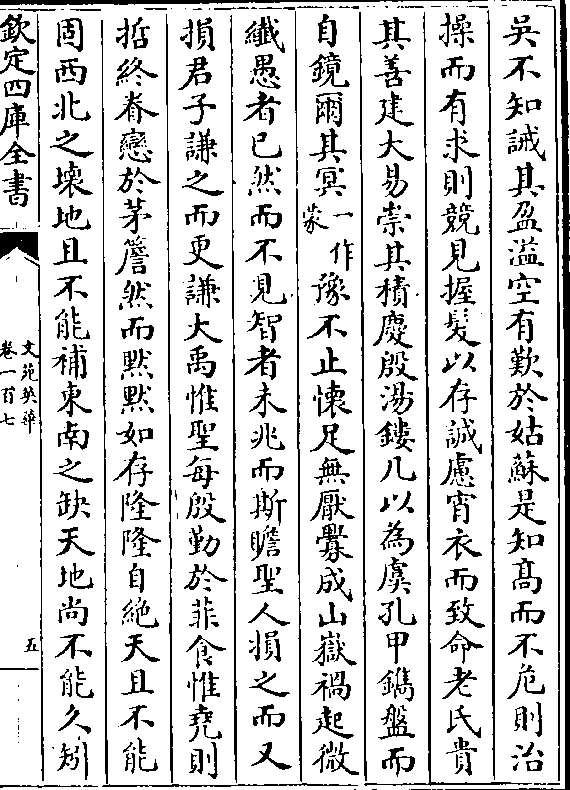 吴不知誡其盈溢空有歎於姑蘇是知髙而不危則治
操而有求則競見握髪以存誠慮宵衣而致命老氏貴
其善建大易崇其積慶殷湯鏤几以為虞孔甲鐫盤而
自鏡爾其冥一作蒙豫不止懐足無厭釁成山嶽禍起微
纎愚者已然而不見智者未兆而斯瞻聖人損之而又
損君子謙之而更謙大禹惟聖每殷勤於菲食惟堯則
哲終眷戀於茅簷然而黙黙如存隆隆自絶天且不能
固西北之壊地且不能補東南之缺天地尚不能久矧
欽定四庫全書
文苑英華
卷一百七
五